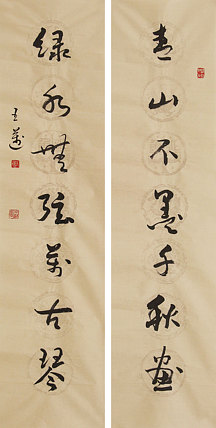 青山不墨千秋画
绿水無弦萬古琴